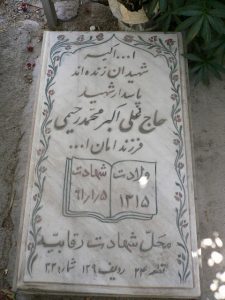 ا... اکبر
شهیدان زنده اند
پاسدار شهید
حاج نعلی اکبر محمد رحیمی
فرزند امان ا...
ولادت شهادت
۱۳۱۵ ۶۱/۱/۵
محل شهادت رقابیه
قطعه ۲۴ ردیف ۱۲۹ شماره ۲۲